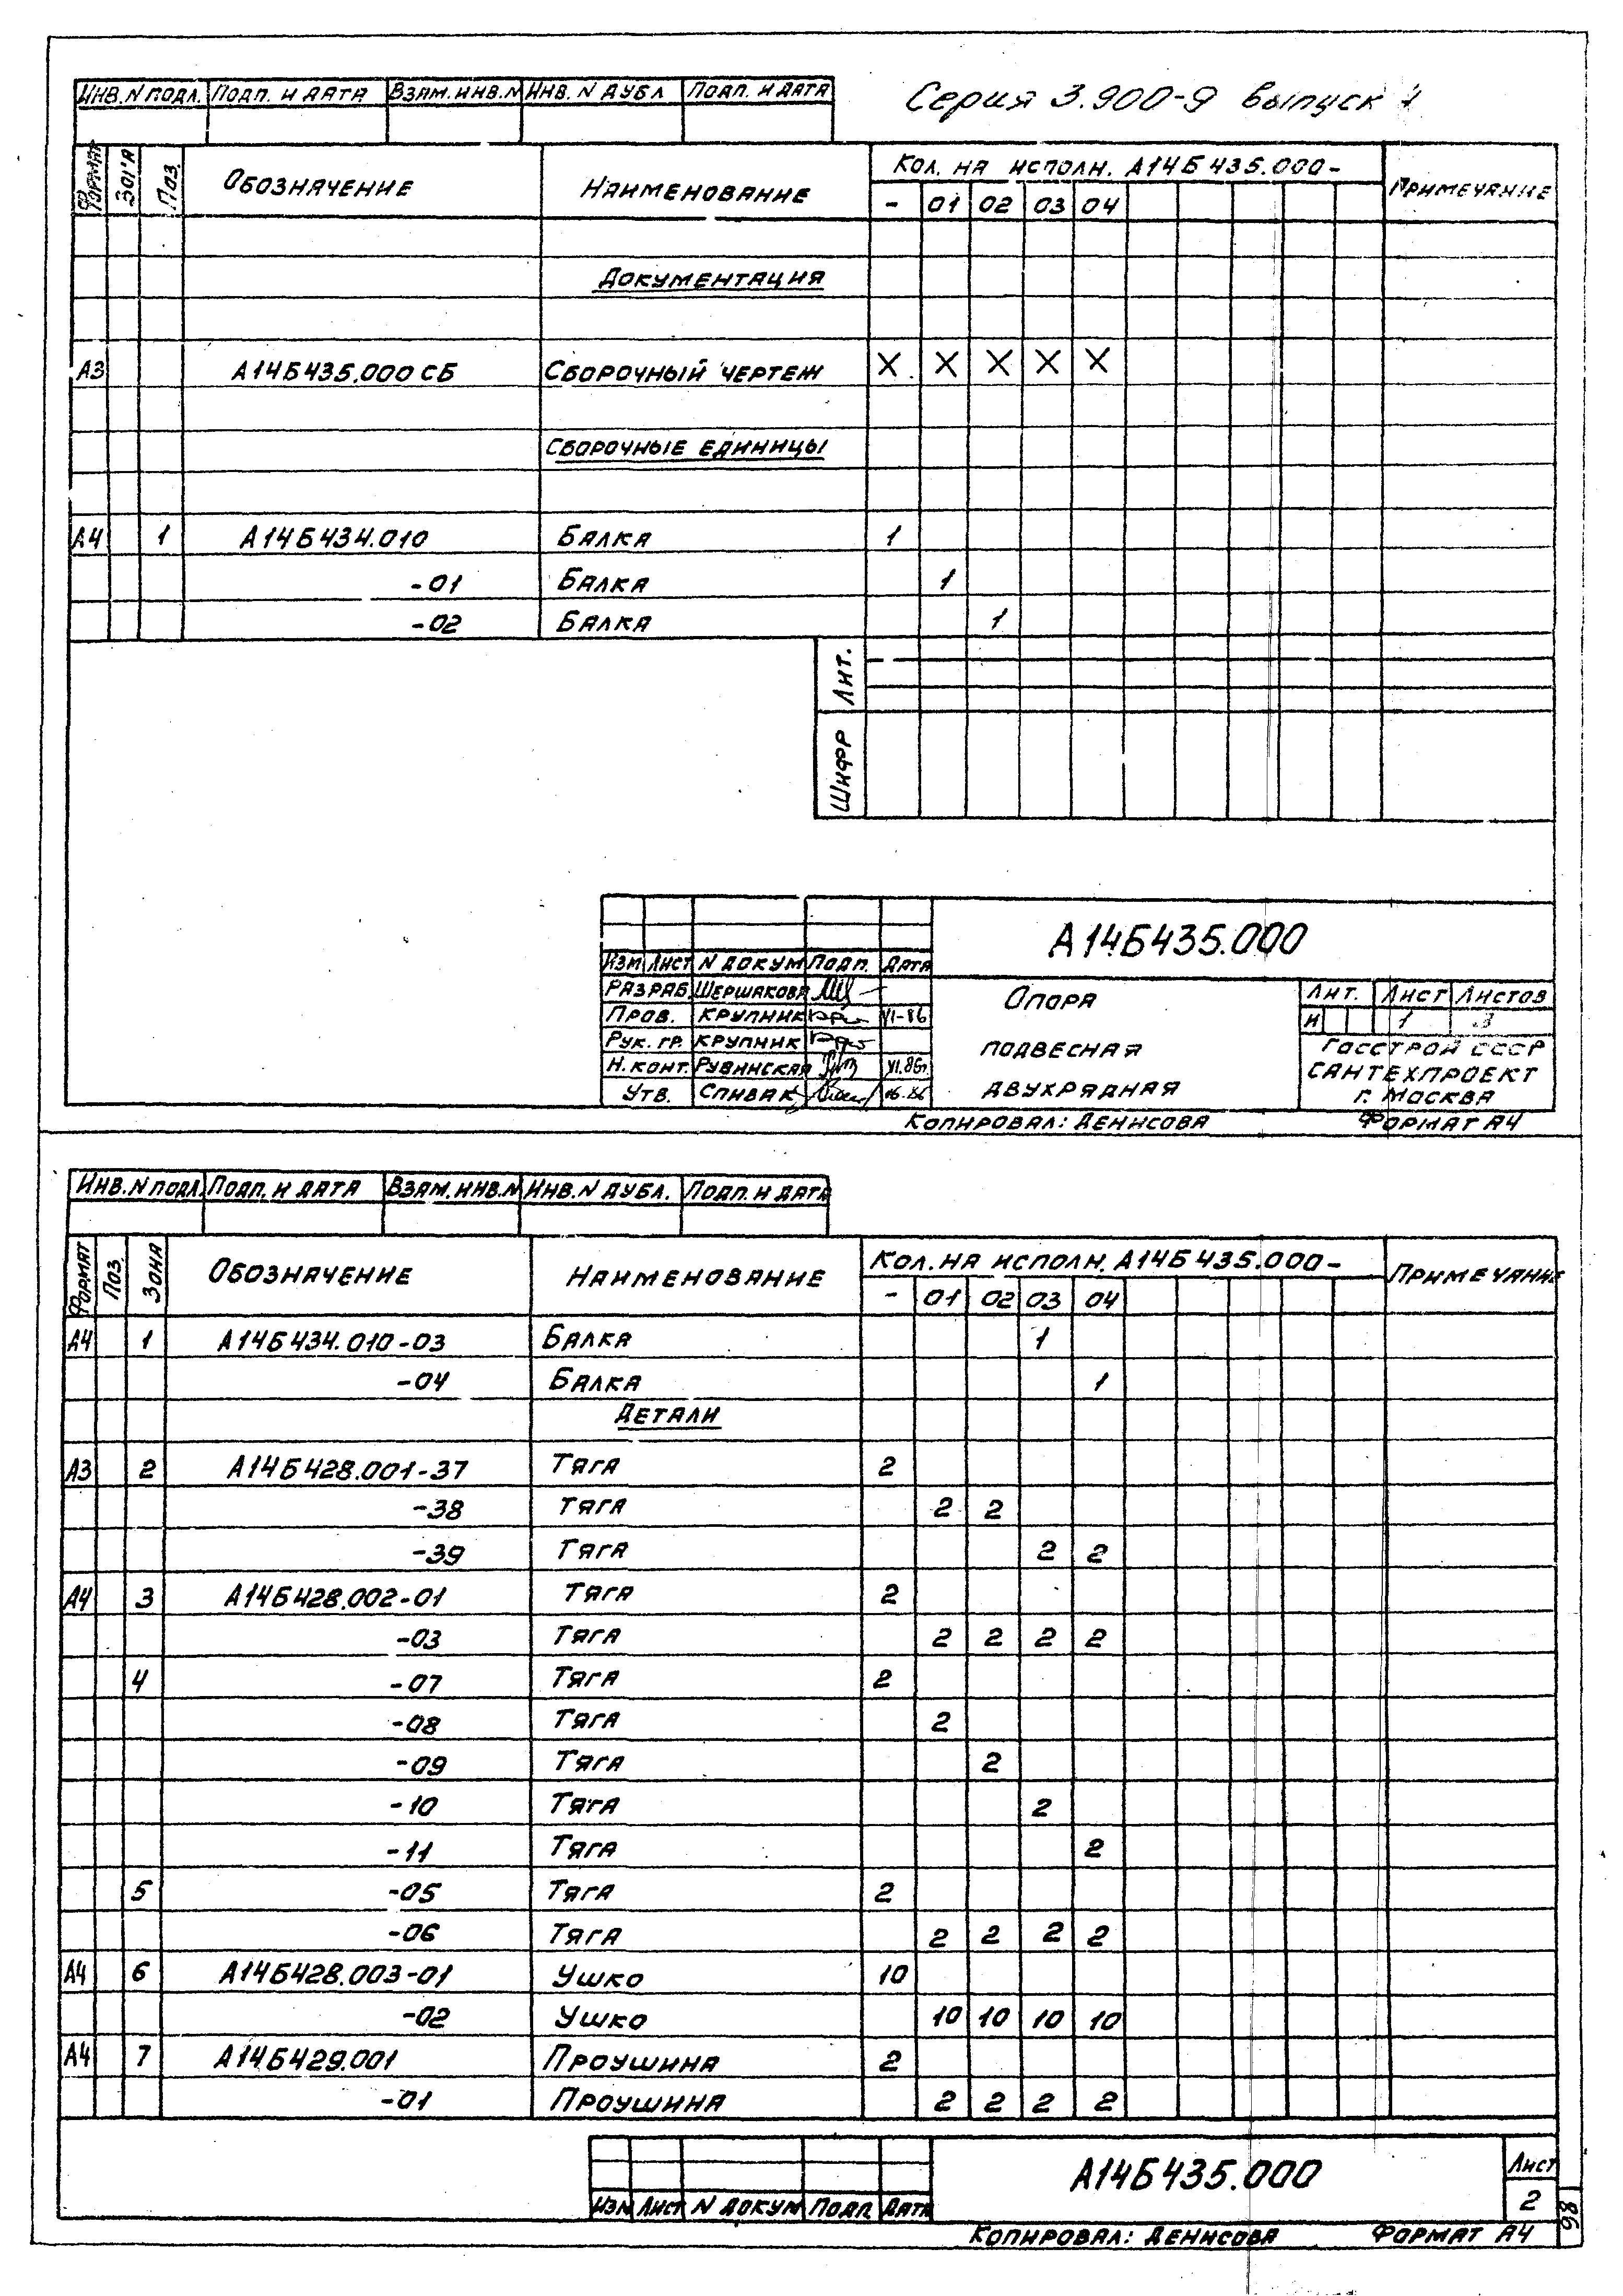 Серия 3.900-9 Выпуск 1
ИНВ. N ПОДЛ. ПОДП. И ДАТА ВЗАМ. ИНВ. N ИНВ. N ДУБЛ ПОДП. И ДАТА
ФОРМАТ ЗОНА ПОЗ. ОБОЗНАЧЕНИЕ НАИМЕНОВАНИЕ КОЛ. НА ИСПОЛН. А14Б435.000- ПРИМЕЧАНИЕ
- 01 02 03 04
ДОКУМЕНТАЦИЯ
А3 А14Б435.000 СБ СБОРОЧНЫЙ ЧЕРТЕЖ X X X X X
СБОРОЧНЫЕ ЕДИНИЦЫ
А4 1 А14Б434.010 БАЛКА 1
-01 БАЛКА 1
-02 БАЛКА 1
ЛИТ.
ШИФР
А14Б435.000
ИЗМ ЛИСТ N ДОКУМ ПОДП. ДАТА
РАЗРАБ. ШЕРШАКОВА
ПРОВ. КРУПНИК VI-86
РУК. ГР. КРУПНИК
Н. КОНТ. РУВИНСКАЯ VI.86г.
УТВ. СПИВАК 06.86
ОПОРА
ПОДВЕСНАЯ
ДВУХРЯДНАЯ
ЛИТ. ЛИСТ ЛИСТОВ
И 1 3
ГОССТРОЙ СССР
САНТЕХПРОЕКТ
Г. МОСКВА
КОПИРОВАЛ: ДЕНИСОВА ФОРМАТ А4
ИНВ. N ПОДЛ. ПОДП. И ДАТА ВЗАМ. ИНВ. N ИНВ. N ДУБЛ. ПОДП. И ДАТА
ФОРМАТ ПОЗ. ЗОНА ОБОЗНАЧЕНИЕ НАИМЕНОВАНИЕ КОЛ. НА ИСПОЛН. А14Б435.000- ПРИМЕЧАНИЕ
- 01 02 03 04
А4 1 А14Б434.010-03 БАЛКА 1
-04 БАЛКА 1
ДЕТАЛИ
А3 2 А14Б428.001-37 ТЯГА 2
-38 ТЯГА 2 2
-39 ТЯГА 2 2
А4 3 А14Б428.002-01 ТЯГА 2
-03 ТЯГА 2 2 2 2
4 -07 ТЯГА 2
-08 ТЯГА 2
-09 ТЯГА 2
-10 ТЯГА 2
-11 ТЯГА 2
5 -05 ТЯГА 2
-06 ТЯГА 2 2 2 2
А4 6 А14Б428.003-01 УШКО 10
-02 УШКО 10 10 10 10
А4 7 А14Б429.001 ПРОУШИНА 2
-01 ПРОУШИНА 2 2 2 2
А14Б435.000
ЛИСТ
2
ИЗМ ЛИСТ N ДОКУМ ПОДП. ДАТА
КОПИРОВАЛ: ДЕНИСОВА ФОРМАТ А4
98